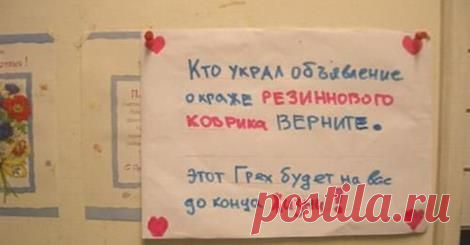 Кто украл объявление
о краже РЕЗИННОВОГО
КОВРИКА ВЕРНИТЕ.
этот Грех будет на вас
до конца
postila.ru